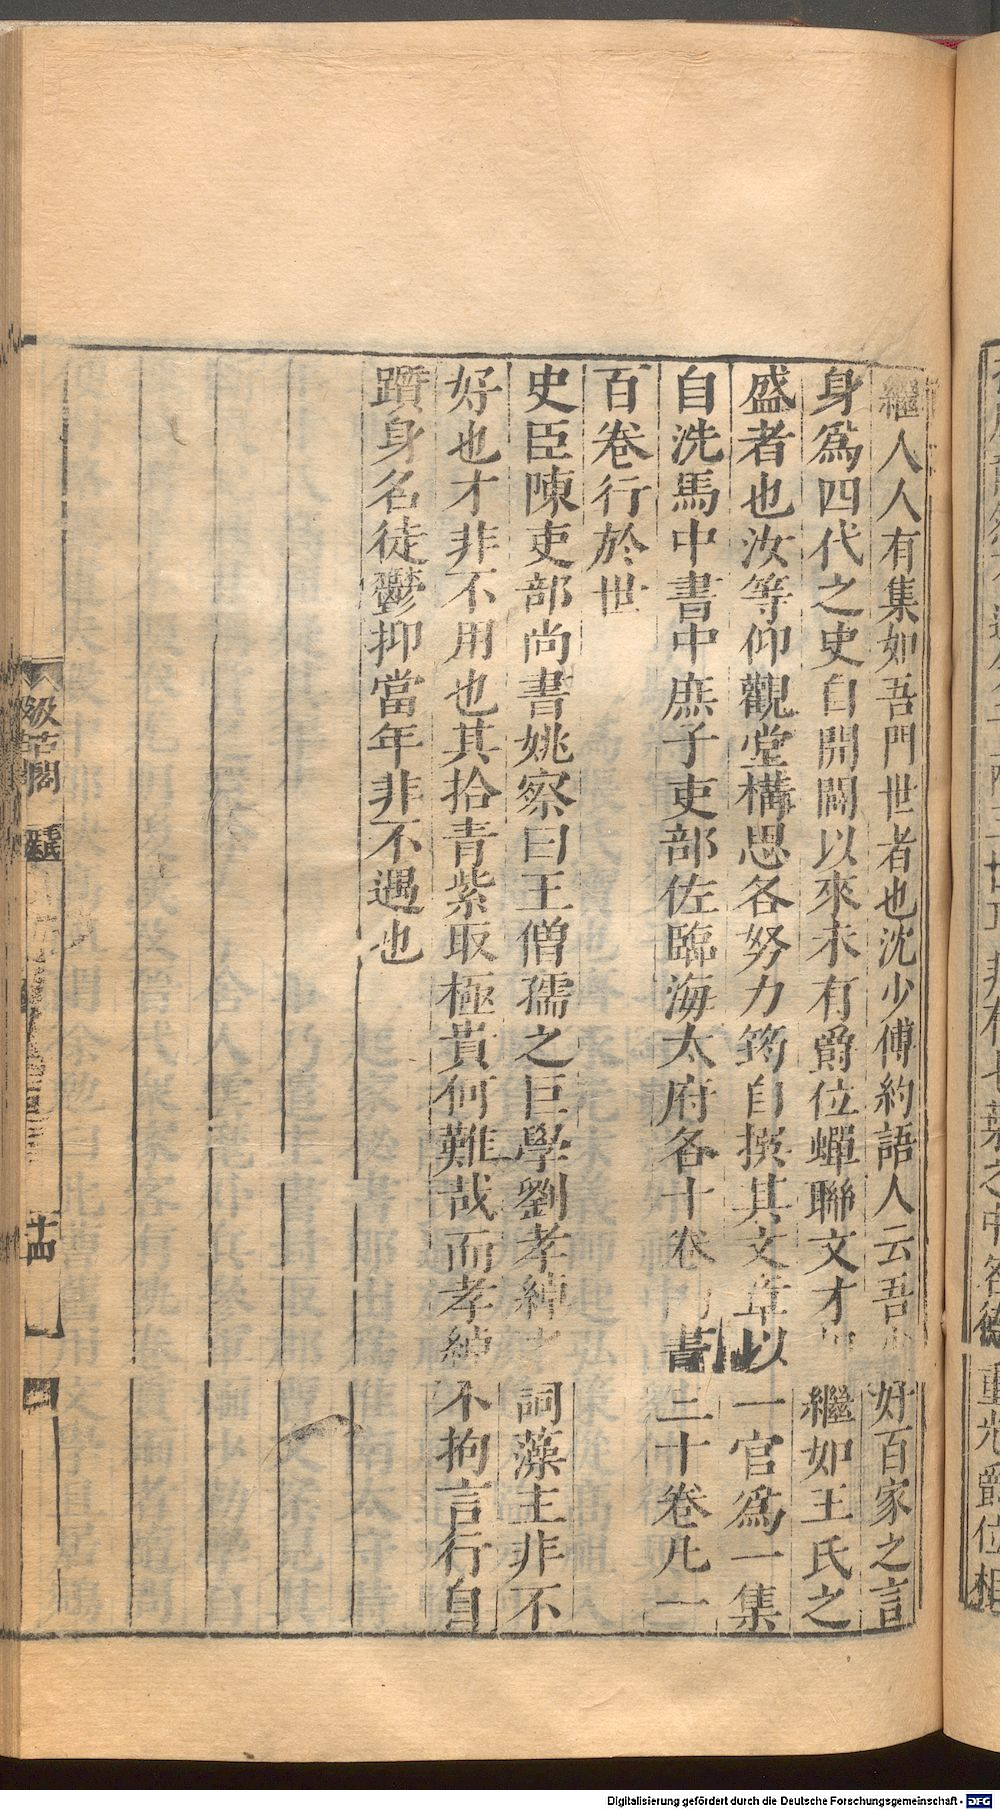 繼人人有集如吾門世者也沈少傅約語人云吾少好百家之言
身爲四代之史自開闢以來未有爵位蟬聯文才相繼如王氏之
盛者也汝等仰觀堂構思各努力筠自撰其文章以一官爲一集
自洗馬中書中庶子吏部佐臨海太府各十卷尚書三十卷凡一
百卷行於世
史臣陳吏部尚書姚察曰王僧孺之巨學劉孝綽之詞藻主非不
好也才非不用也其拾青紫取極貴何難哉而孝綽不拘言行自
躓身名徒鬱抑當年非不遇也
汲古閣
毛氏
十四
Digitalisierung gefördert durch die Deutsche Forschungsgemeinschaft - DFG